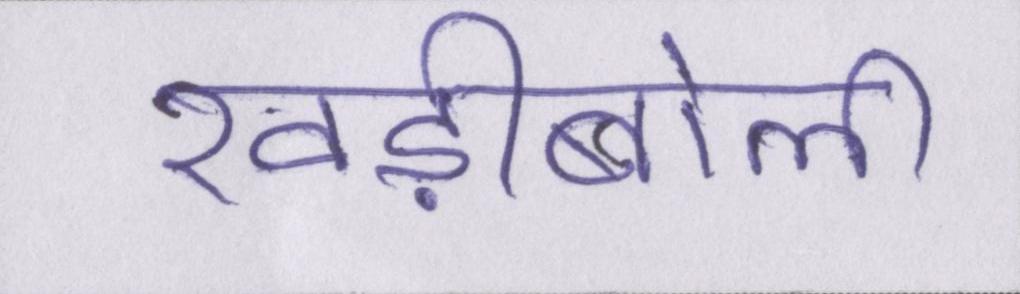 खड़ीबोली